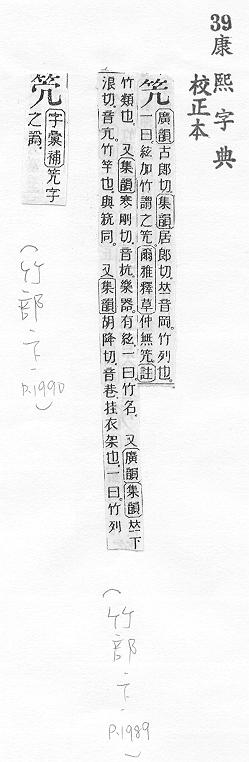 39
康熙字典
校正本
笐 廣韻古郎切集韻居郎切𠀤音岡。竹列也。
一曰絃加竹謂之笐。爾雅釋草仲無笐註
竹類也。又集韻寒剛切。音杭。樂器。有絃。一曰竹名。 又廣韻集韻𠀤下
浪切。音亢。竹竿也。與同。又集韻胡降切。音巷。挂衣架也。一曰。竹列
(竹部 P.1989)
字彙補笐字
之譌。
(竹部 P.1990)